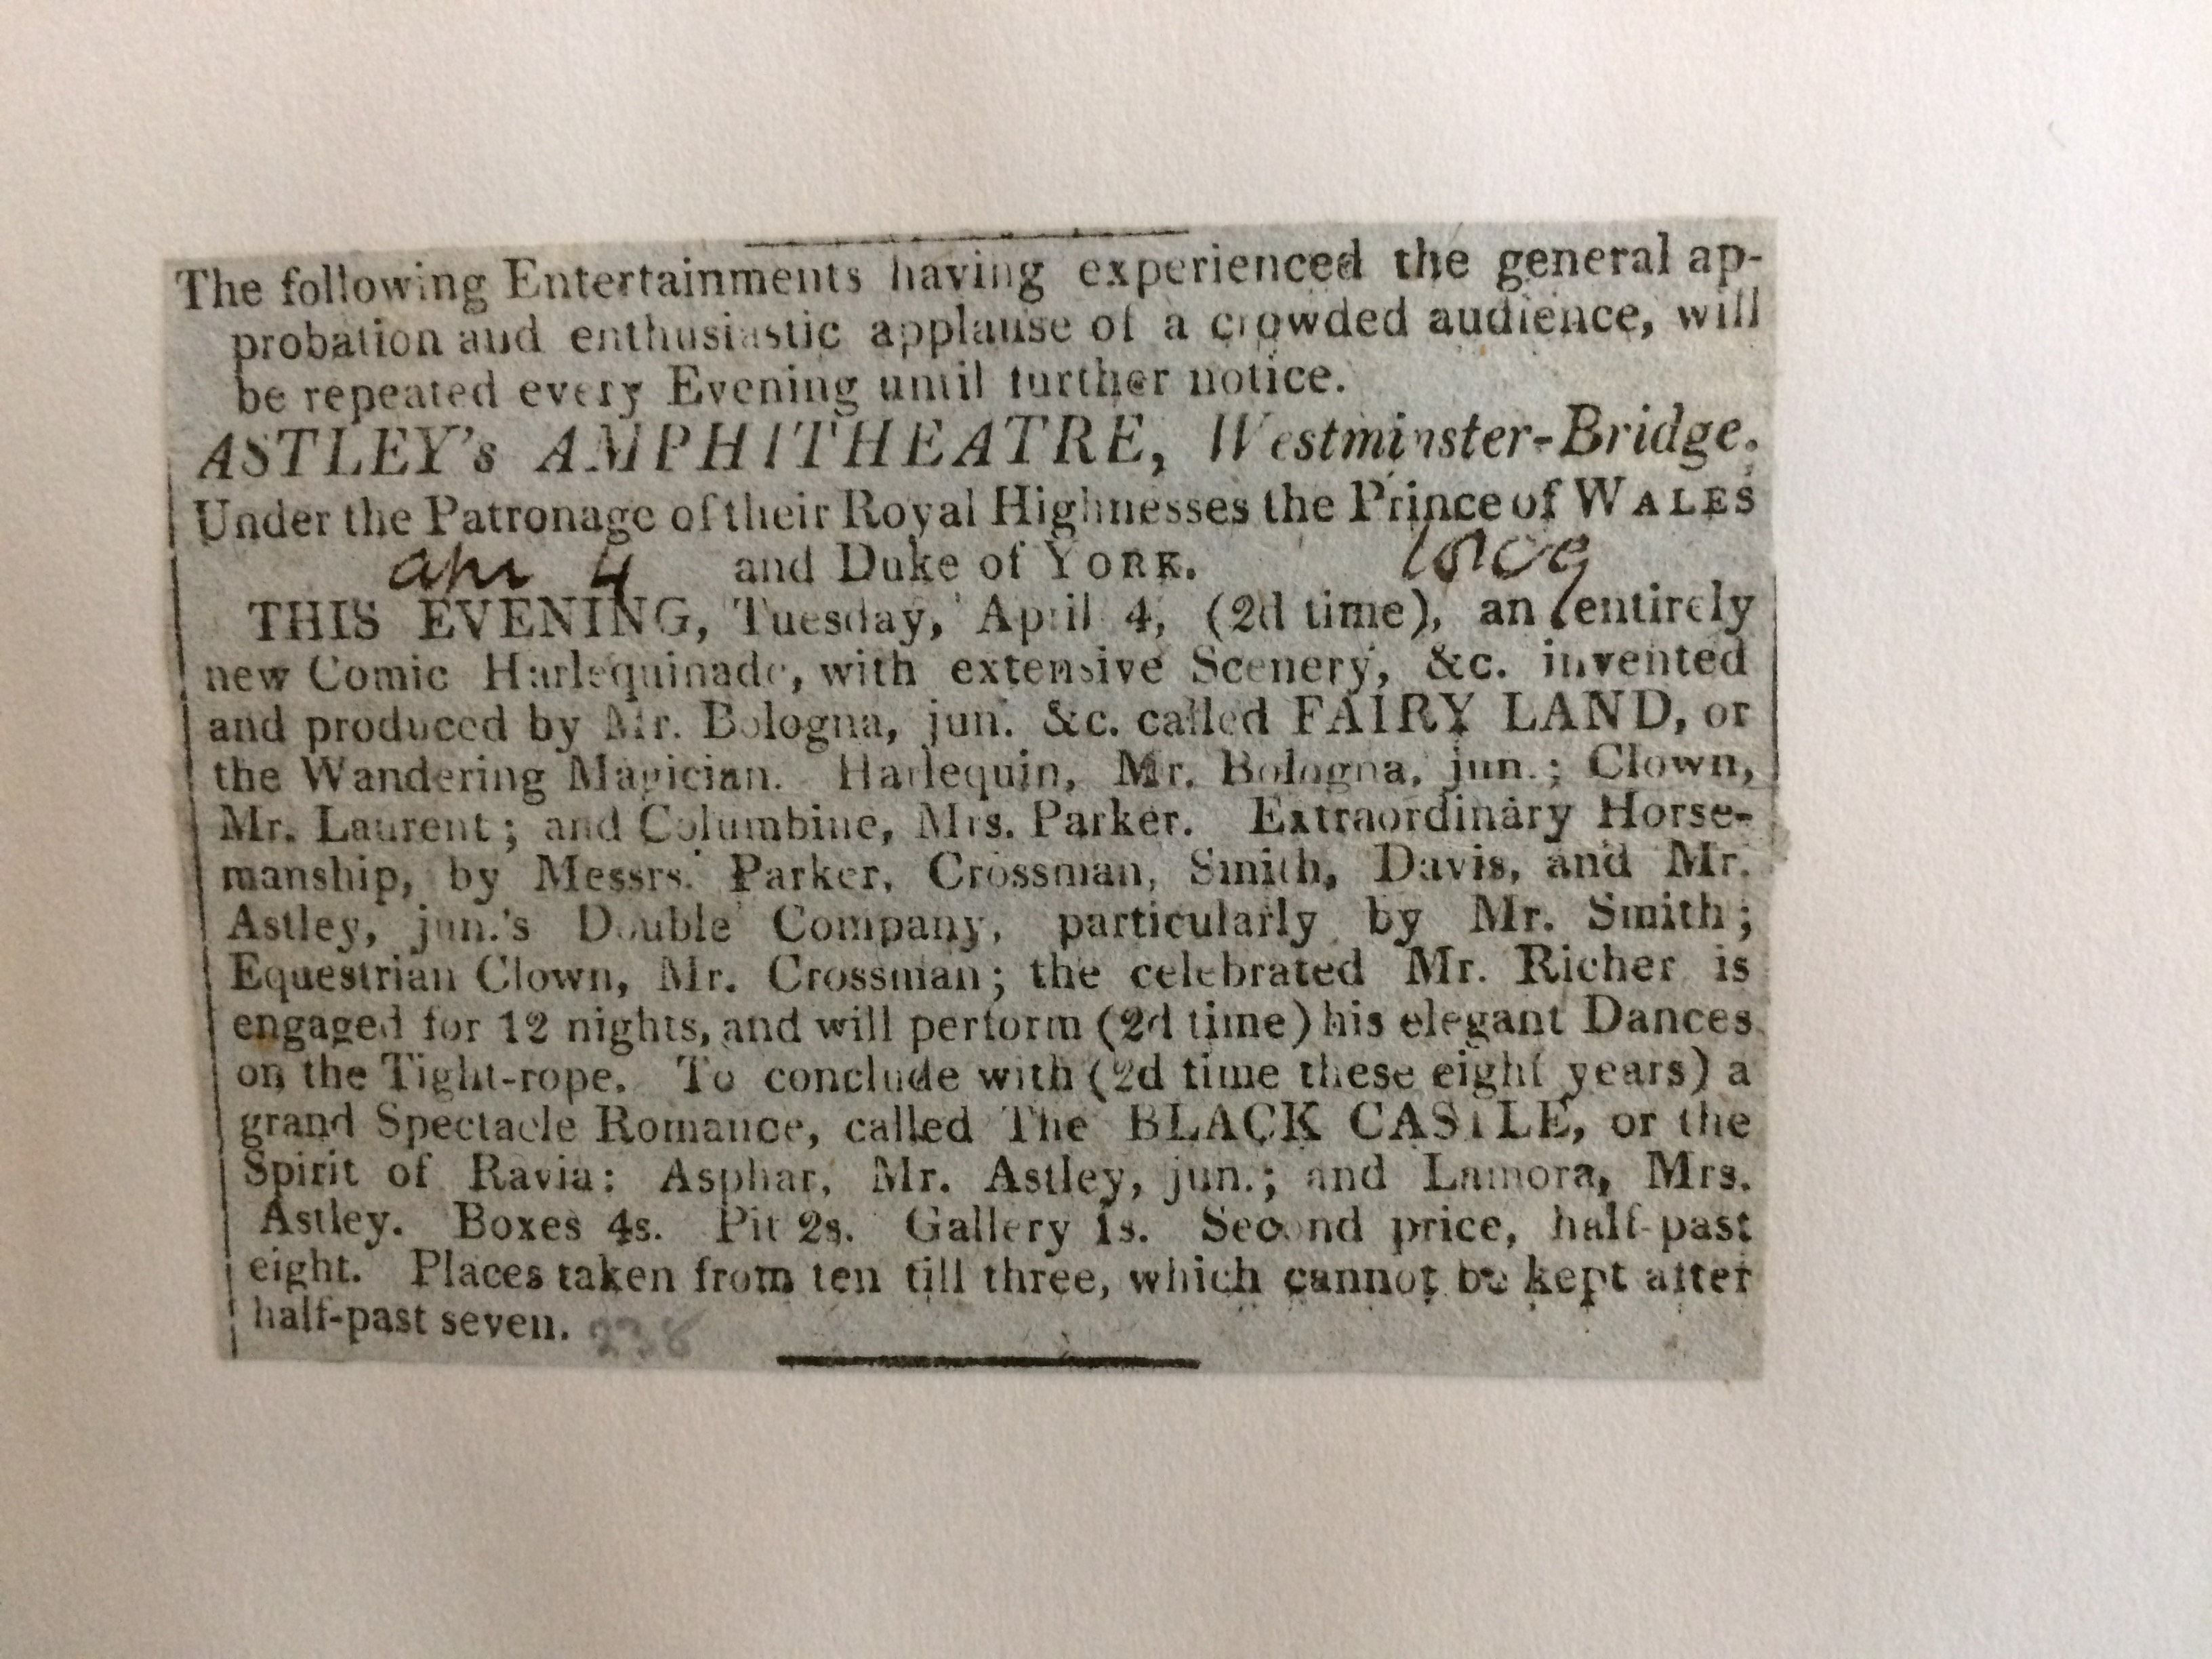 The following Entertainments having experienced the general ap-
probation and enthusiastic applause of a crowded audience, will
be repeated every Evening until further notice.
ASTLEY's AMPHITHEATRE, Westminster-Bridge.
Under the Patronage of their Royal Highnesses the Prince of WALES
apr 4 and Duke of YORK.
THIS EVENING, Tuesday, April 4, (2d time), an entirely
new Comic Harlequinade, with extensive Scenery, &c. invented
and produced by Mr. Bologna, jun. &c. called FAIRY LAND, or
the Wandering Magician. Harlequin, Mr. Bologna, jun.; Clown,
Mr. Laurent; and Columbine, Mrs. Parker. Extraordinary Horse-
manship, by Messrs. Parker, Crossman, Smith, Davis, and Mr.
Astley, jun.'s Double Company, particularly by Mr. Smith;
Equestrian Clown, Mr. Crossman; the celebrated Mr. Richer is
engaged for 12 nights, and will perform (2d time) his elegant Dances
on the Tight-rope. To conclude with (2d time these eight years) a
grand Spectacle Romance, called The BLACK CASTLE, or the
Spirit of Ravia: Asphar, Mr. Astley, jun.; and Lamora, Mrs.
Astley. Boxes 4s. Pit 2s. Gallery 1s. Second price, half-past
eight. Places taken from ten till three, which cannot be kept after
half-past seven. 238